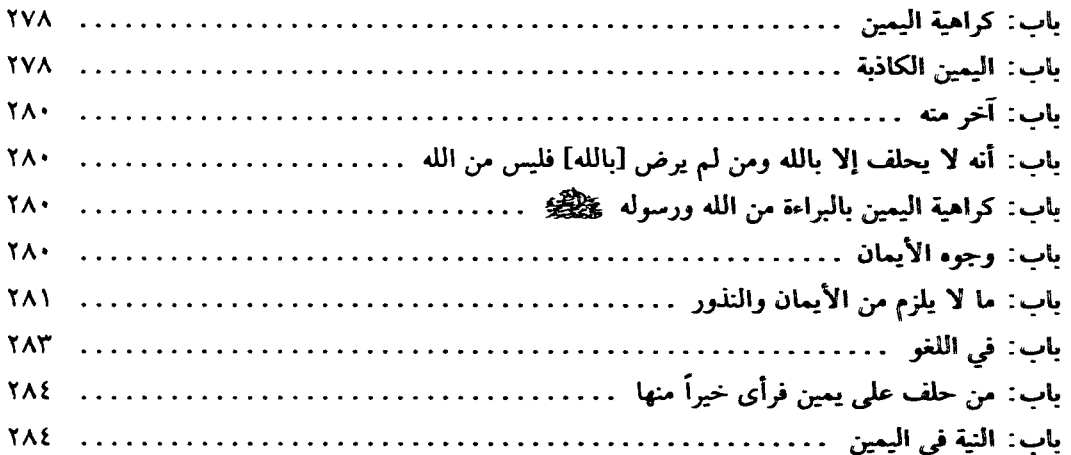 باب: كراهية اليمين ................................................ ٢٧٨
باب: اليمين الكاذبة ................................................ ٢٧٨
باب: آخر منه ................................................ ٢٨٠
باب: أنه لا يحلف إلا بالله ومن لم يرض [بالله] فليس من الله ........................ ٢٨٠
باب: كراهية اليمين بالبراءة من الله ورسوله ﷺ ............................ ٢٨٠
باب: وجوه الأيمان ................................................ ٢٨٠
باب: ما لا يلزم من الأيمان والنذور ........................................ ٢٨١
باب: في اللغو ................................................ ٢٨٣
باب: من حلف على يمين فرأى خيراً منها .................................... ٢٨٤
باب: النية في اليمين ................................................ ٢٨٤